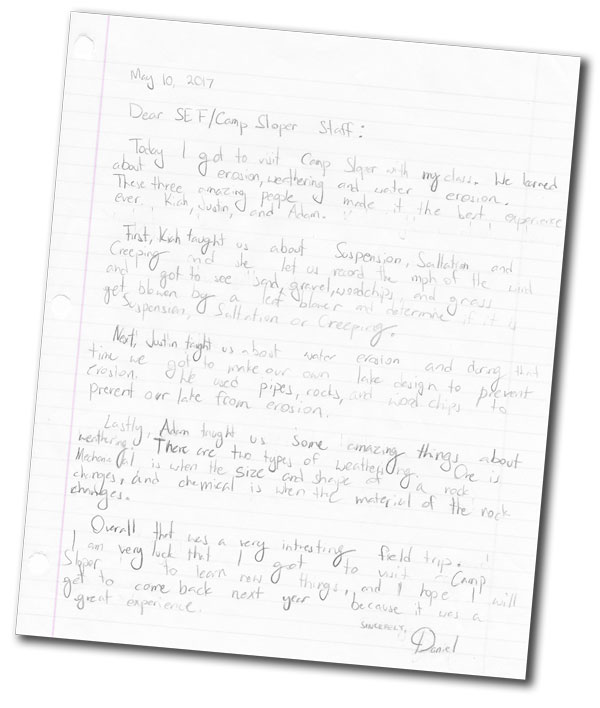 May 10, 2017
Dear SEF/Camp Sloper Staff:
Today I got to visit Camp Sloper with my class. We learned
about erosion, weathering and water erosion.
These three amazing people made it the best experience
ever. Kiah, Justin, and Adam.
First, Kiah taught us about Suspension, Saltation and
Creeping and she let us record the mph of the wind
and got to see sand, gravel, woodchips, and grass
get blown by a leaf blower and determine if it is
Suspension, Saltation or Creeping.
Next, Justin taught us about water erosion and during that
time we got to make our own lake design to prevent
erosion. We used pipes, rocks, and wood chips to
prevent our lake from erosion.
Lastly, Adam taught us some amazing things about
weathering. There are two types of weathering. One is
Mechanical is when the size and shape of a rock
changes, and chemical is when the material of the rock
changes.
Overall that was a very intresting field trip.
I am very luck that I got to visit Camp
Sloper to learn new things, and I hope I will
get to come back next year because it was a
great experience.
SINCERELY,
Daniel